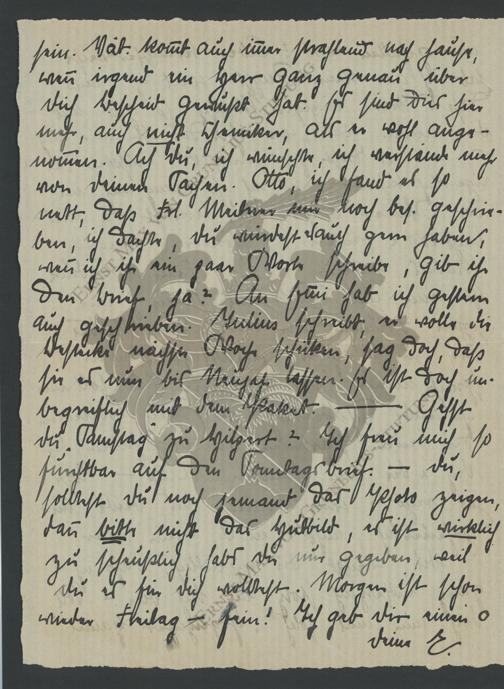 sein. Vat. kom̅t auch im̅er strahlend nach Hause,
wen̅ irgend ein Herr ganz genau über
Dich Bescheid gewußt hat. Es sind dies hier
mehr, auch nicht Chemiker, als er wohl ange-
nom̅en. Ach Du, ich wünschte, ich verstände mehr
von deinen Sachen. Otto, ich fand es so
nett, daß Frl. Meitner mir noch bes. geschrie-
ben, ich dachte, du würdest es auch gern haben,
wen̅ ich ihr ein paar Worte schreibe, gib ihr
den Brief, ja? An hab ich gestern
auch geschrieben. Julius schreibt, er wolle die
Bestecke nächste Woche schicken, sag doch, daß
sie es nun bis Neujahr lassen. Es ist doch un-
begreiflich mit dem Paket. — Gehst
du Samstag zu ? Ich freu mich so
furchtbar auf den Sonntagsbrief. — Du,
solltest du noch jemand das Photo zeigen,
dan̅ bitte nicht das Hutbild, es ist wirklich
zu scheußlich, habs dir nur gegeben, weil
du es für dich wolltest. Morgen ist schon
wieder Freitag — fein! Ich geb dir einen o
deine E.